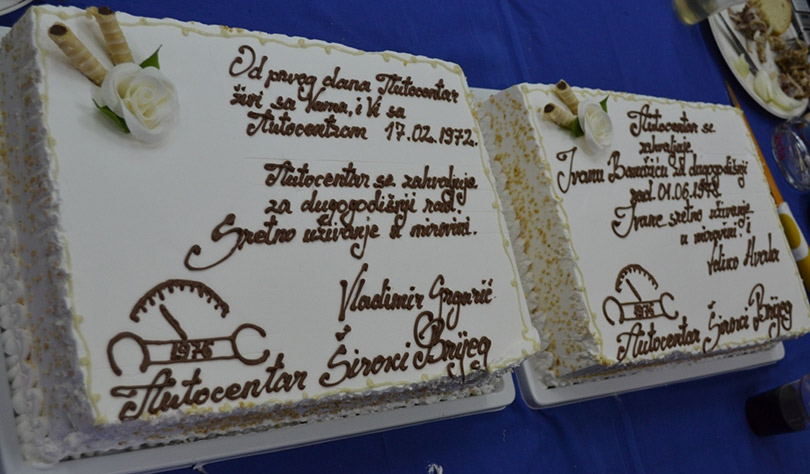 Od prvog dana Autocentar
živi sa Vama, i Vi sa
Autocentrom 17.02.1972.
Autocentar se zahvaljuje
za dugogodišnji rad.
Sretno uživanje u mirovini.
Vladimir Grgarić
1976
Autocentar Široki Brijeg
Autocentar se
zahvaljuje
Ivanu za dugogodišnji
rad 01.06.1978
Ivane sretno uživanje
u mirovini i
Veliko Hvala
1976
Autocentar Široki Brijeg